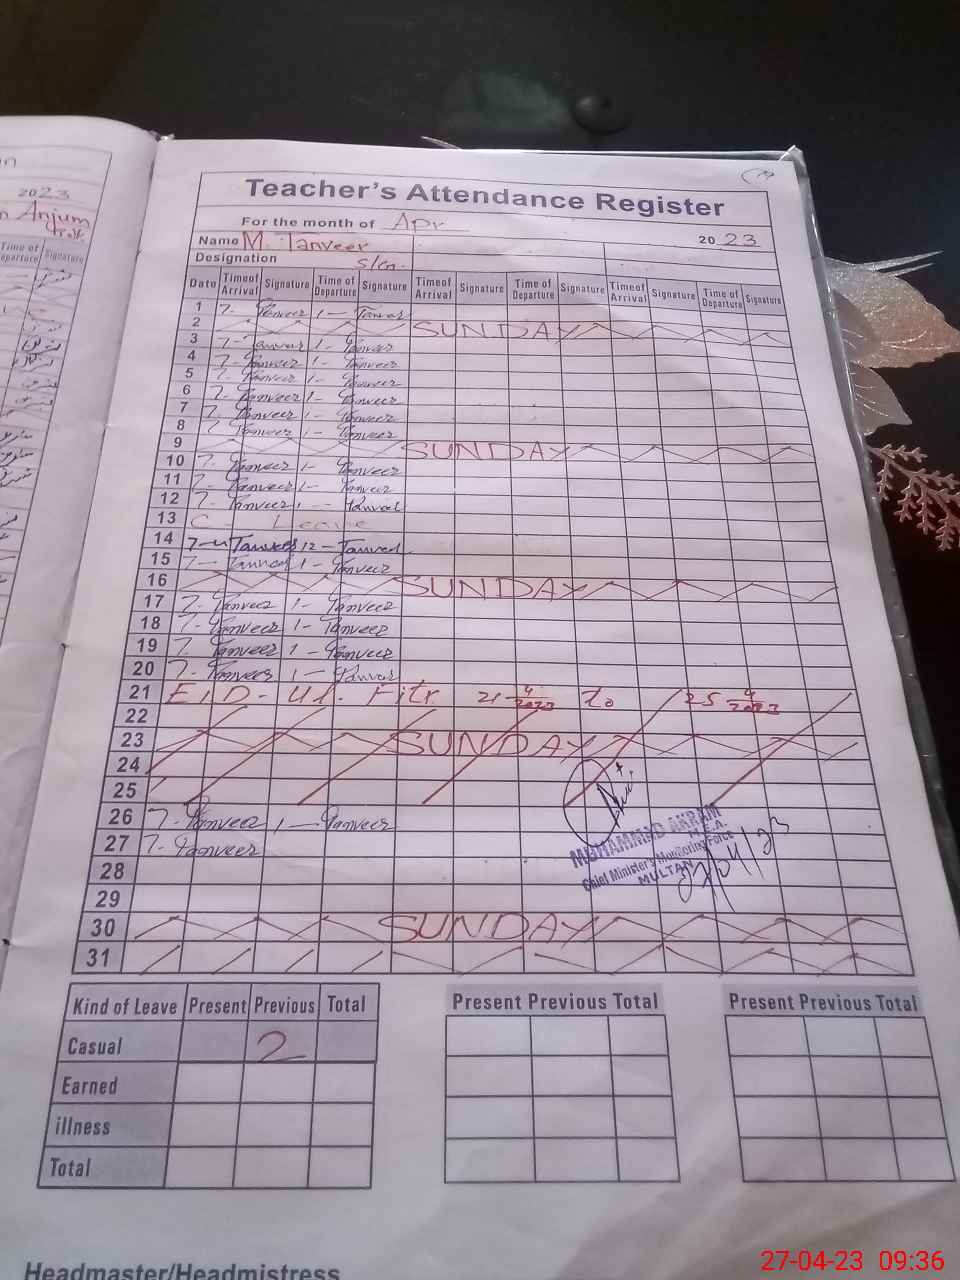 2023
Anjum
Time of Departure Signature
Teacher's Attendance Register
For the month of Apr
Name M. Tanveer 2023
Designation
Date Time of Arrival Signature Time of Departure Signature Time of Arrival Signature Time of Departure Signature Time of Arrival Signature Time of Departure Signature
1 7- Tanveer 1-
2 SUNDAY
3 7- 1- Tanveer
4 7- Tanveer 1- Tanveer
5 7- Tanveer 1- Tanveer
6 7- Tanveer 1- Tanveer
7 7- Tanveer 1- Tanveer
8 7- Tanveer 1- Tanveer
9 SUNDAY
10 7- Tanveer 1- Tanveer
11 7- Tanveer 1- Tanveer
12 7- Tanveer 1-
13 C- Leave
14 7- 12-
15 7- 1- Tanveer
16 SUNDAY
17 7- Tanveer 1- Tanveer
18 7- Tanveer 1- Tanveer
19 7- Tanveer 1- Tanveer
20 7- Tanveer 1-
21 EID- Ul. Fitr 21 4/2023 to 25 4/2023
22
23 SUNDAY
24
25
26 7- Tanveer 1- Tanveer
27 7- Tanveer
MUHAMMAD AKRAM
M.E.A.
Chief Minister's Monitoring Force
MULTAN
28
29
30 SUNDAY
31
Kind of Leave Present Previous Total Present Previous Total Present Previous Total
Casual 2
Earned
illness
Total
Headmaster/Headmistress
27-04-23 09:36